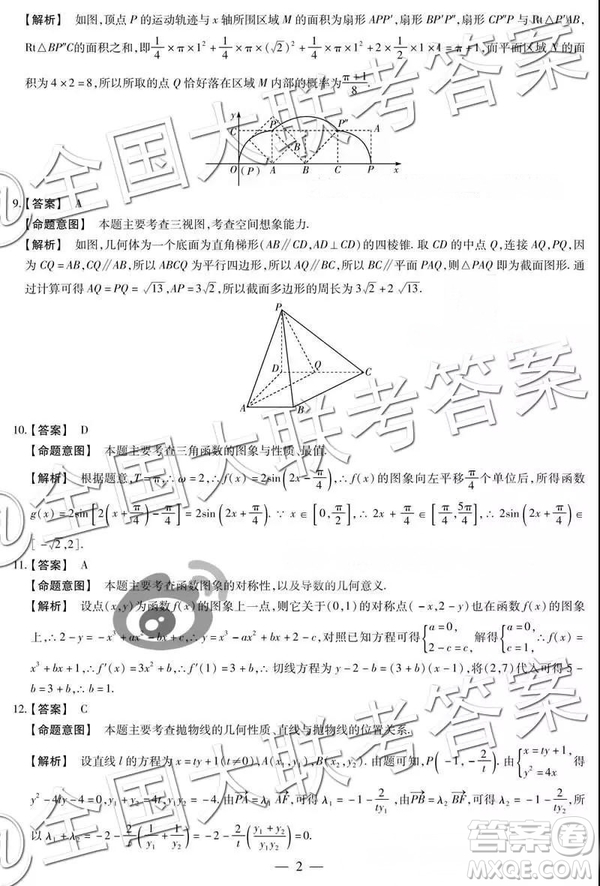 【解析】 如图,顶点 P 的运动轨迹与 x 轴所围区域 M 的面积为扇形 APP′,扇形 BP′P″,扇形 CP″P 与 Rt△P′AB,
Rt△BP″C的面积之和,即1/4×π×1²+1/4×π×(√2)²+1/4×π×1²+2×1/2×1×1=π+1,而平面区域 N 的面
积为 4×2=8,所以所取的点 Q 恰好落在区域 M 内部的概率为(π+1)/8.
y C P′ P″ A
O (P) A B C P x
9.【答案】 A
【命题意图】 本题主要考查三视图,考查空间想象能力.
【解析】 如图,几何体为一个底面为直角梯形(AB∥CD,AD⊥CD)的四棱锥.取 CD 的中点 Q,连接 AQ,PQ,因
为 CQ=AB,CQ∥AB,所以 ABCQ 为平行四边形,所以 AQ∥BC,所以 BC∥平面 PAQ,则△PAQ 即为截面图形.通
过计算可得 AQ=PQ=√13,AP=3√2,所以截面多边形的周长为 3√2+2√13.
P
D Q C
A B
10.【答案】 D
【命题意图】 本题主要考查三角函数的图象与性质、最值.
【解析】 根据题意,T=π,∴ω=2,∴f(x)=2sin(2x-π/4),∴f(x)的图象向左平移π/4个单位后,所得函数
g(x)=2sin[2(x+π/4)-π/4]=2sin(2x+π/4).∵x∈[0,π/2],∴2x+π/4∈[π/4,5π/4],∴2sin(2x+π/4)∈
[-√2,2].
11.【答案】 A
【命题意图】 本题主要考查函数图象的对称性,以及导数的几何意义.
【解析】 设点(x,y)为函数 f(x)的图象上一点,则它关于(0,1)的对称点(-x,2-y)也在函数 f(x)的图象
上,∴2-y=-x³+ax²-bx+c,∴f(x)=x³-ax²+bx+2-c,对照已知可得{a=0, 2-c=c, 解得{a=0, c=1, ∴f(x)=
x³+bx+1,∴f′(x)=3x²+b,∴f′(1)=3+b,∴切线方程为 y-2-b=(3+b)(x-1),将(2,7)代入可得 5-
b=3+b,∴b=1.
12.【答案】 C
【命题意图】 本题主要考查抛物线的几何性质、直线与抛物线的位置关系.
【解析】 设直线 l 的方程为 x=ty+1(t≠0),A(x₁,y₁),B(x₂,y₂).由题意可知,P(-1,-2/t).由{x=ty+1, y²=4x 得
y²-4ty-4=0,

可得 λ₁=-1-2/(ty₁),由

可得 λ₂=-1-2/(ty₂),所
以 λ₁+λ₂=-2-2/t((y₁+y₂)/(y₁y₂))=0.
— 2 —
全国大联考答案
@全国大联考答案
@全国大联考答案
答案圈
MXQE.COM